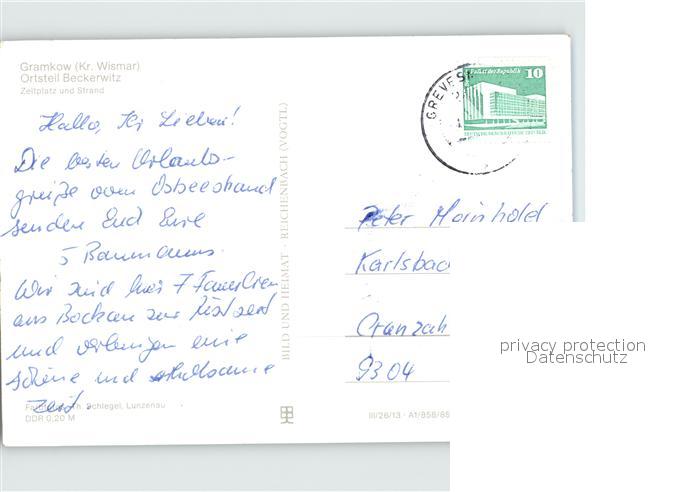 Gramkow (Kr. Wismar)
Ortsteil Beckerwitz
Zeltplatz und Strand
Hallo, Ihr Lieben!
Die besten Urlaubs-
grüße vom Ostseestrand
senden Euch Eure
5 Baumanns.
Wir sind hier 7 Familien
aus Bockau zur
und verbringen eine
schöne und erholsame
Zeit.
Schlegel, Lunzenau
DDR 0,20 M
BILD UND HEIMAT · REICHENBACH (VOGTL)
GREVES
Palast der Republik
10
DEUTSCHE DEMOKRATISCHE REPUBLIK
Peter Mainhold
Karlsbad
Cranzahl
9304
III/26/13 · A1/858/85
privacy protection
Datenschutz